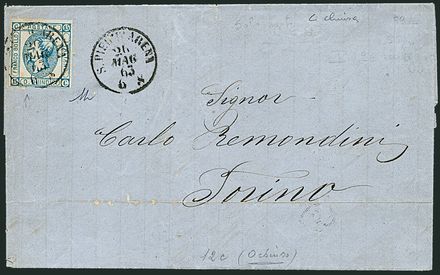 O chiusa
S. PIER D'ARENA
26
MAG
63
6 S
Signor
Carlo Remondini
Torino
12c (O chiuso)